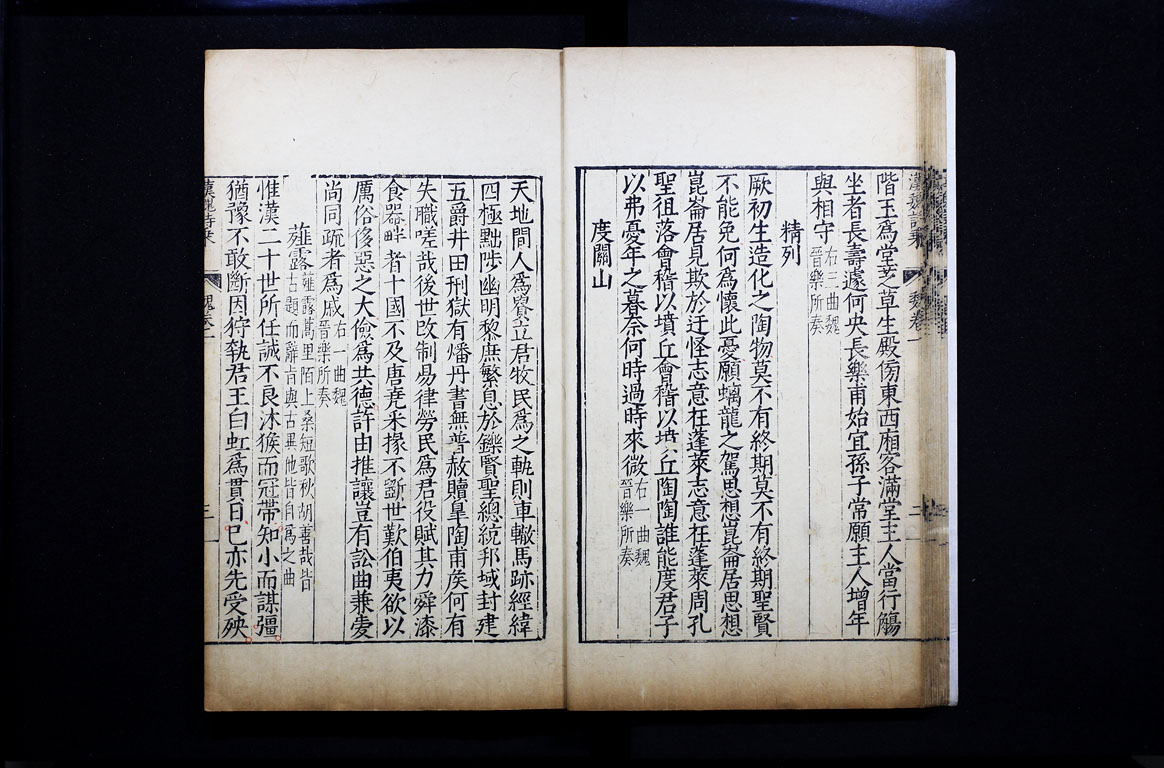 漢魏詩乘 魏卷一 二
階玉為堂芝草生殿傍東西廂客滿堂主人當行觴
坐者長壽遽何央長樂甫始宜孫子常願主人增年
與相守右三曲魏晉樂所奏
精列
厥初生造化之陶物莫不有終期莫不有終期聖賢
不能免何為懷此憂願螭龍之駕思想崑崙居思想
崑崙居見欺於迂怪志意在蓬萊志意在蓬萊周孔
聖徂落會稽以墳丘會稽以墳丘陶陶誰能度君子
以弗憂年之暮奈何時過時來微右一曲魏晉樂所奏
度關山
天地間人為貴立君牧民為之軌則車轍馬跡經緯
四極黜陟幽明黎庶繁息於鑠賢聖總統邦域封建
五爵井田刑獄有燔丹書無普赦贖皋陶甫矦何有
失職嗟哉後世攺制易律勞民為君役賦其力舜漆
食器畔者十國不及唐堯采椽不斵世歎伯夷欲以
厲俗侈惡之大儉為共德許由推讓豈有訟曲兼愛
尚同疏者為戚右一曲魏晉樂所奏
薤露薤露蒿里陌上桑短歌秋胡善哉皆古題而辭肯與古異他皆自為之曲
惟漢二十世所任誠不良沐猴而冠帶知小而謀彊
猶豫不敢斷因狩執君王白虹為貫日已亦先受殃
漢魏詩乘 魏卷一 三